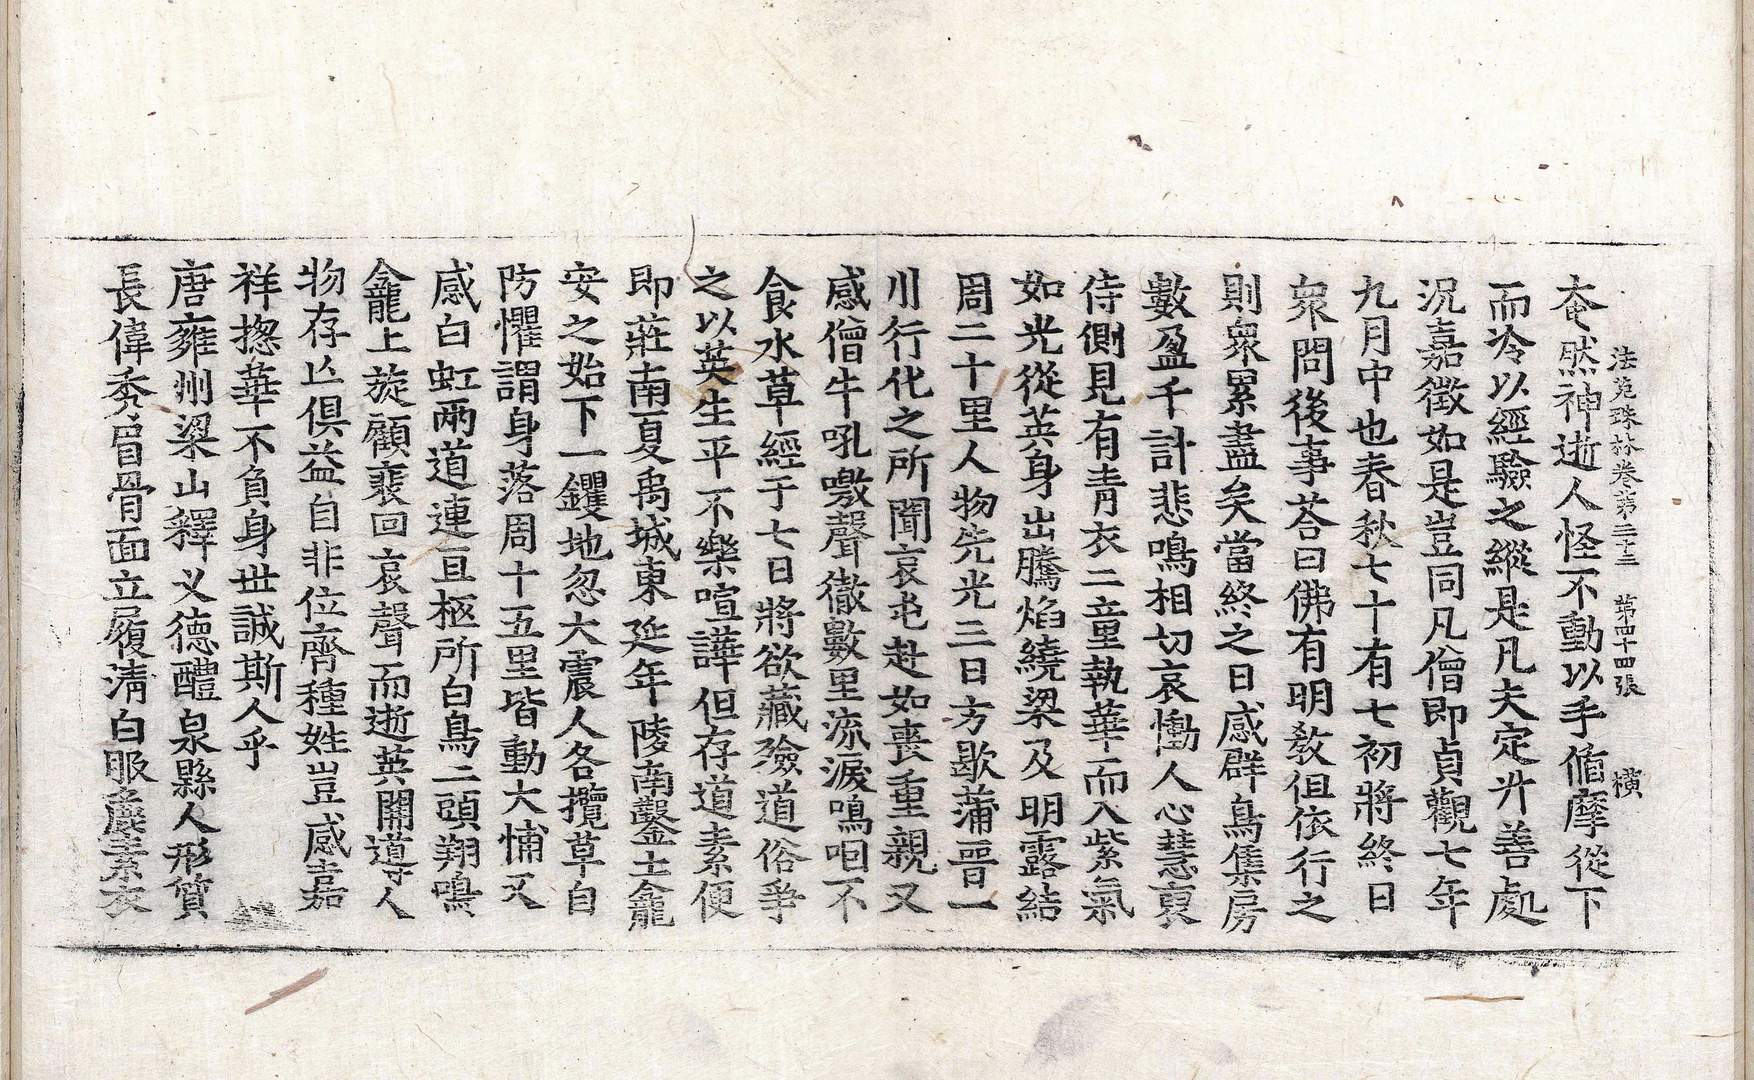 法苑珠林卷第三十三 第四十四張 橫
奄然神逝人怪不動以手循摩從下
而冷以經驗之縱是凡夫定升善處
況嘉徵如是豈同凡僧即貞觀七年
九月中也春秋七十有七初將終日
衆問後事荅曰佛有明敎但依行之
則衆累盡矣當終之日感群鳥集房
數盈千計悲鳴相切哀慟人心慧裒
侍側見有青衣二童執華而入紫氣
如光從英身出騰焰繞梁及明露結
周二十里人物失光三日方歇蒲晉一
川行化之所聞哀屯赴如喪重親又
感僧牛吼噭聲徹數里流淚嗚咽不
食水草經于七日將欲藏殮道俗爭
之以英生平不樂喧譁但存道素便
即莊南夏禹城東延年陵南鑿土龕
安之始下一钁地忽大震人各攬草自
防懼謂身落周十五里皆動大怖又
感白虹兩道連亘柩所白鳥二頭翔鳴
龕上旋顧裴回哀聲而逝英開導人
物存亾俱益自非位齊種姓豈感嘉
祥揔華不負身世誠斯人乎
唐雍州梁山釋义德醴泉縣人形質
長偉秀眉骨面立履淸白服麤素衣